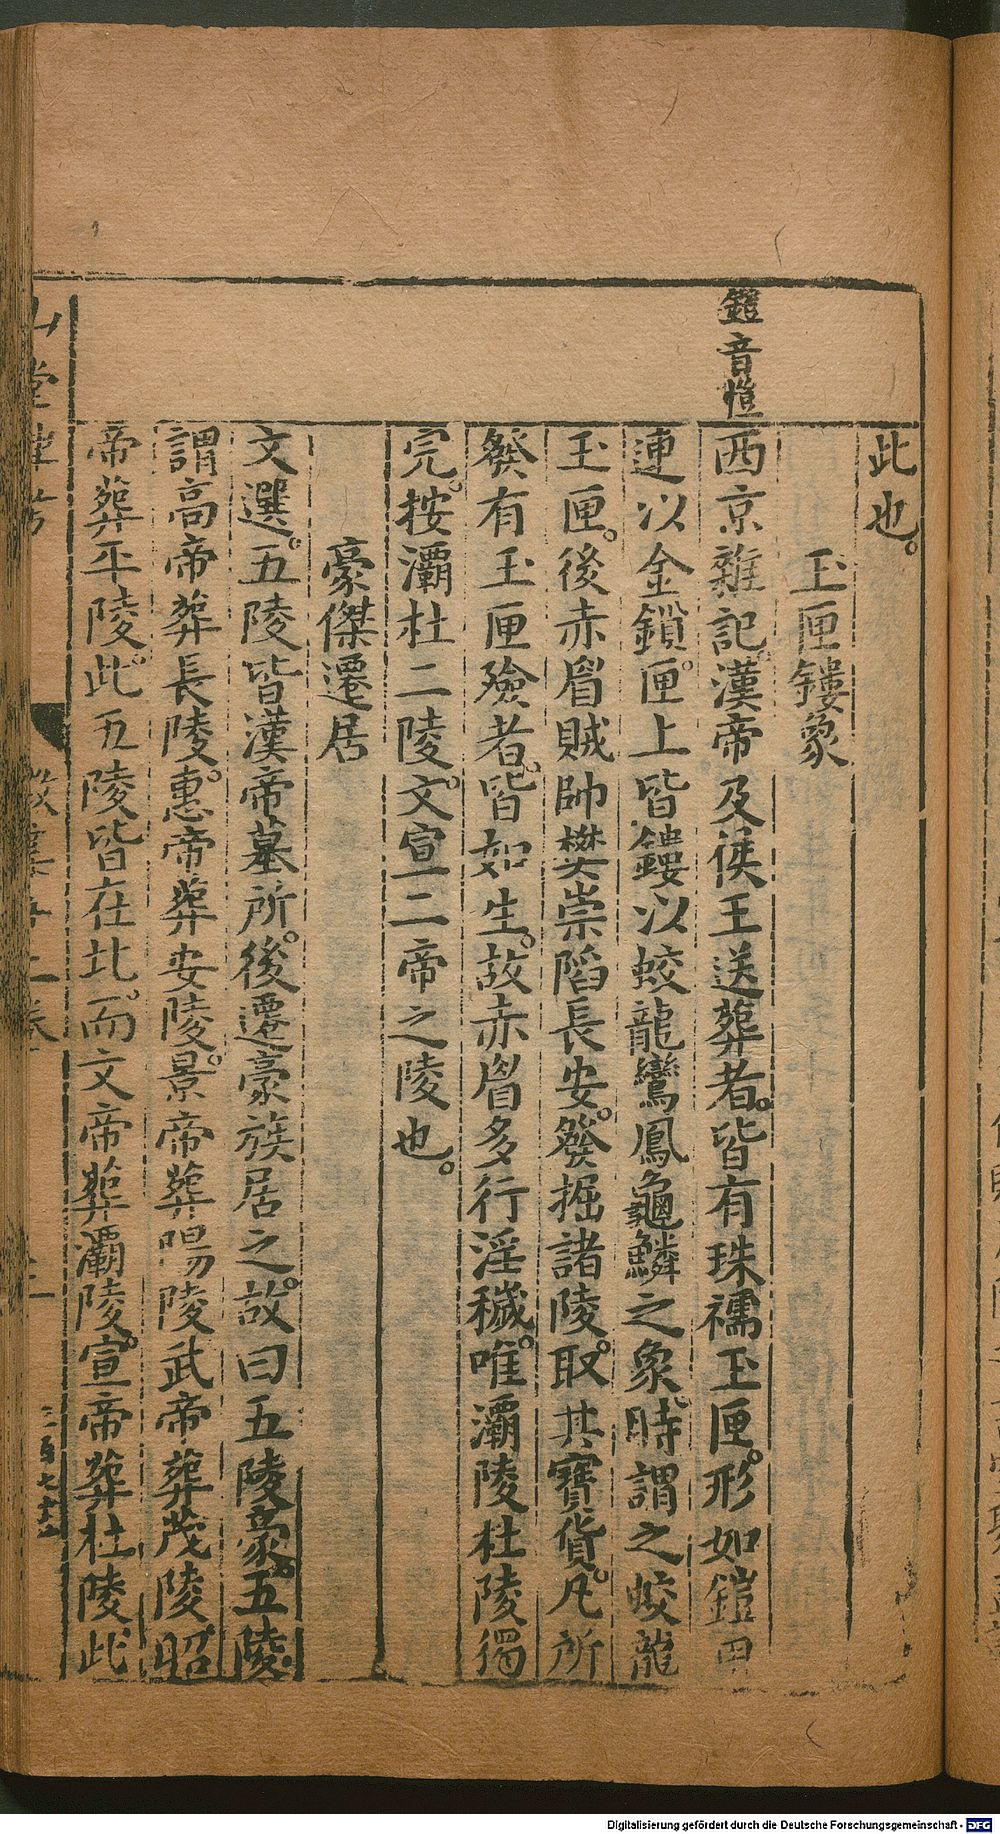 此也。
玉匣鏤象
鎧音愷
西京雜記。漢帝及侯王送葬者。皆有珠襦玉匣。形如鎧甲
連以金鎖。匣上皆鏤以蛟龍鸞鳳龜鱗之象。時謂之蛟龍
玉匣。後赤眉賊帥樊崇陷長安。發掘諸陵。取其寶貨。凡所
發有玉匣殮者。皆如生。故赤眉多行淫穢。唯灞陵杜陵獨
完。按灞杜二陵。文宣二帝之陵也。
豪傑遷居
文選。五陵皆漢帝墓所。後遷豪族居之。故曰五陵豪。五陵
謂高帝葬長陵。惠帝葬安陵。景帝葬陽陵武帝葬茂陵。昭
帝葬平陵。此五陵皆在北。而文帝葬灞陵。宣帝葬杜陵此
山堂肆考
Digitalisierung gefördert durch die Deutsche Forschungsgemeinschaft - DFG